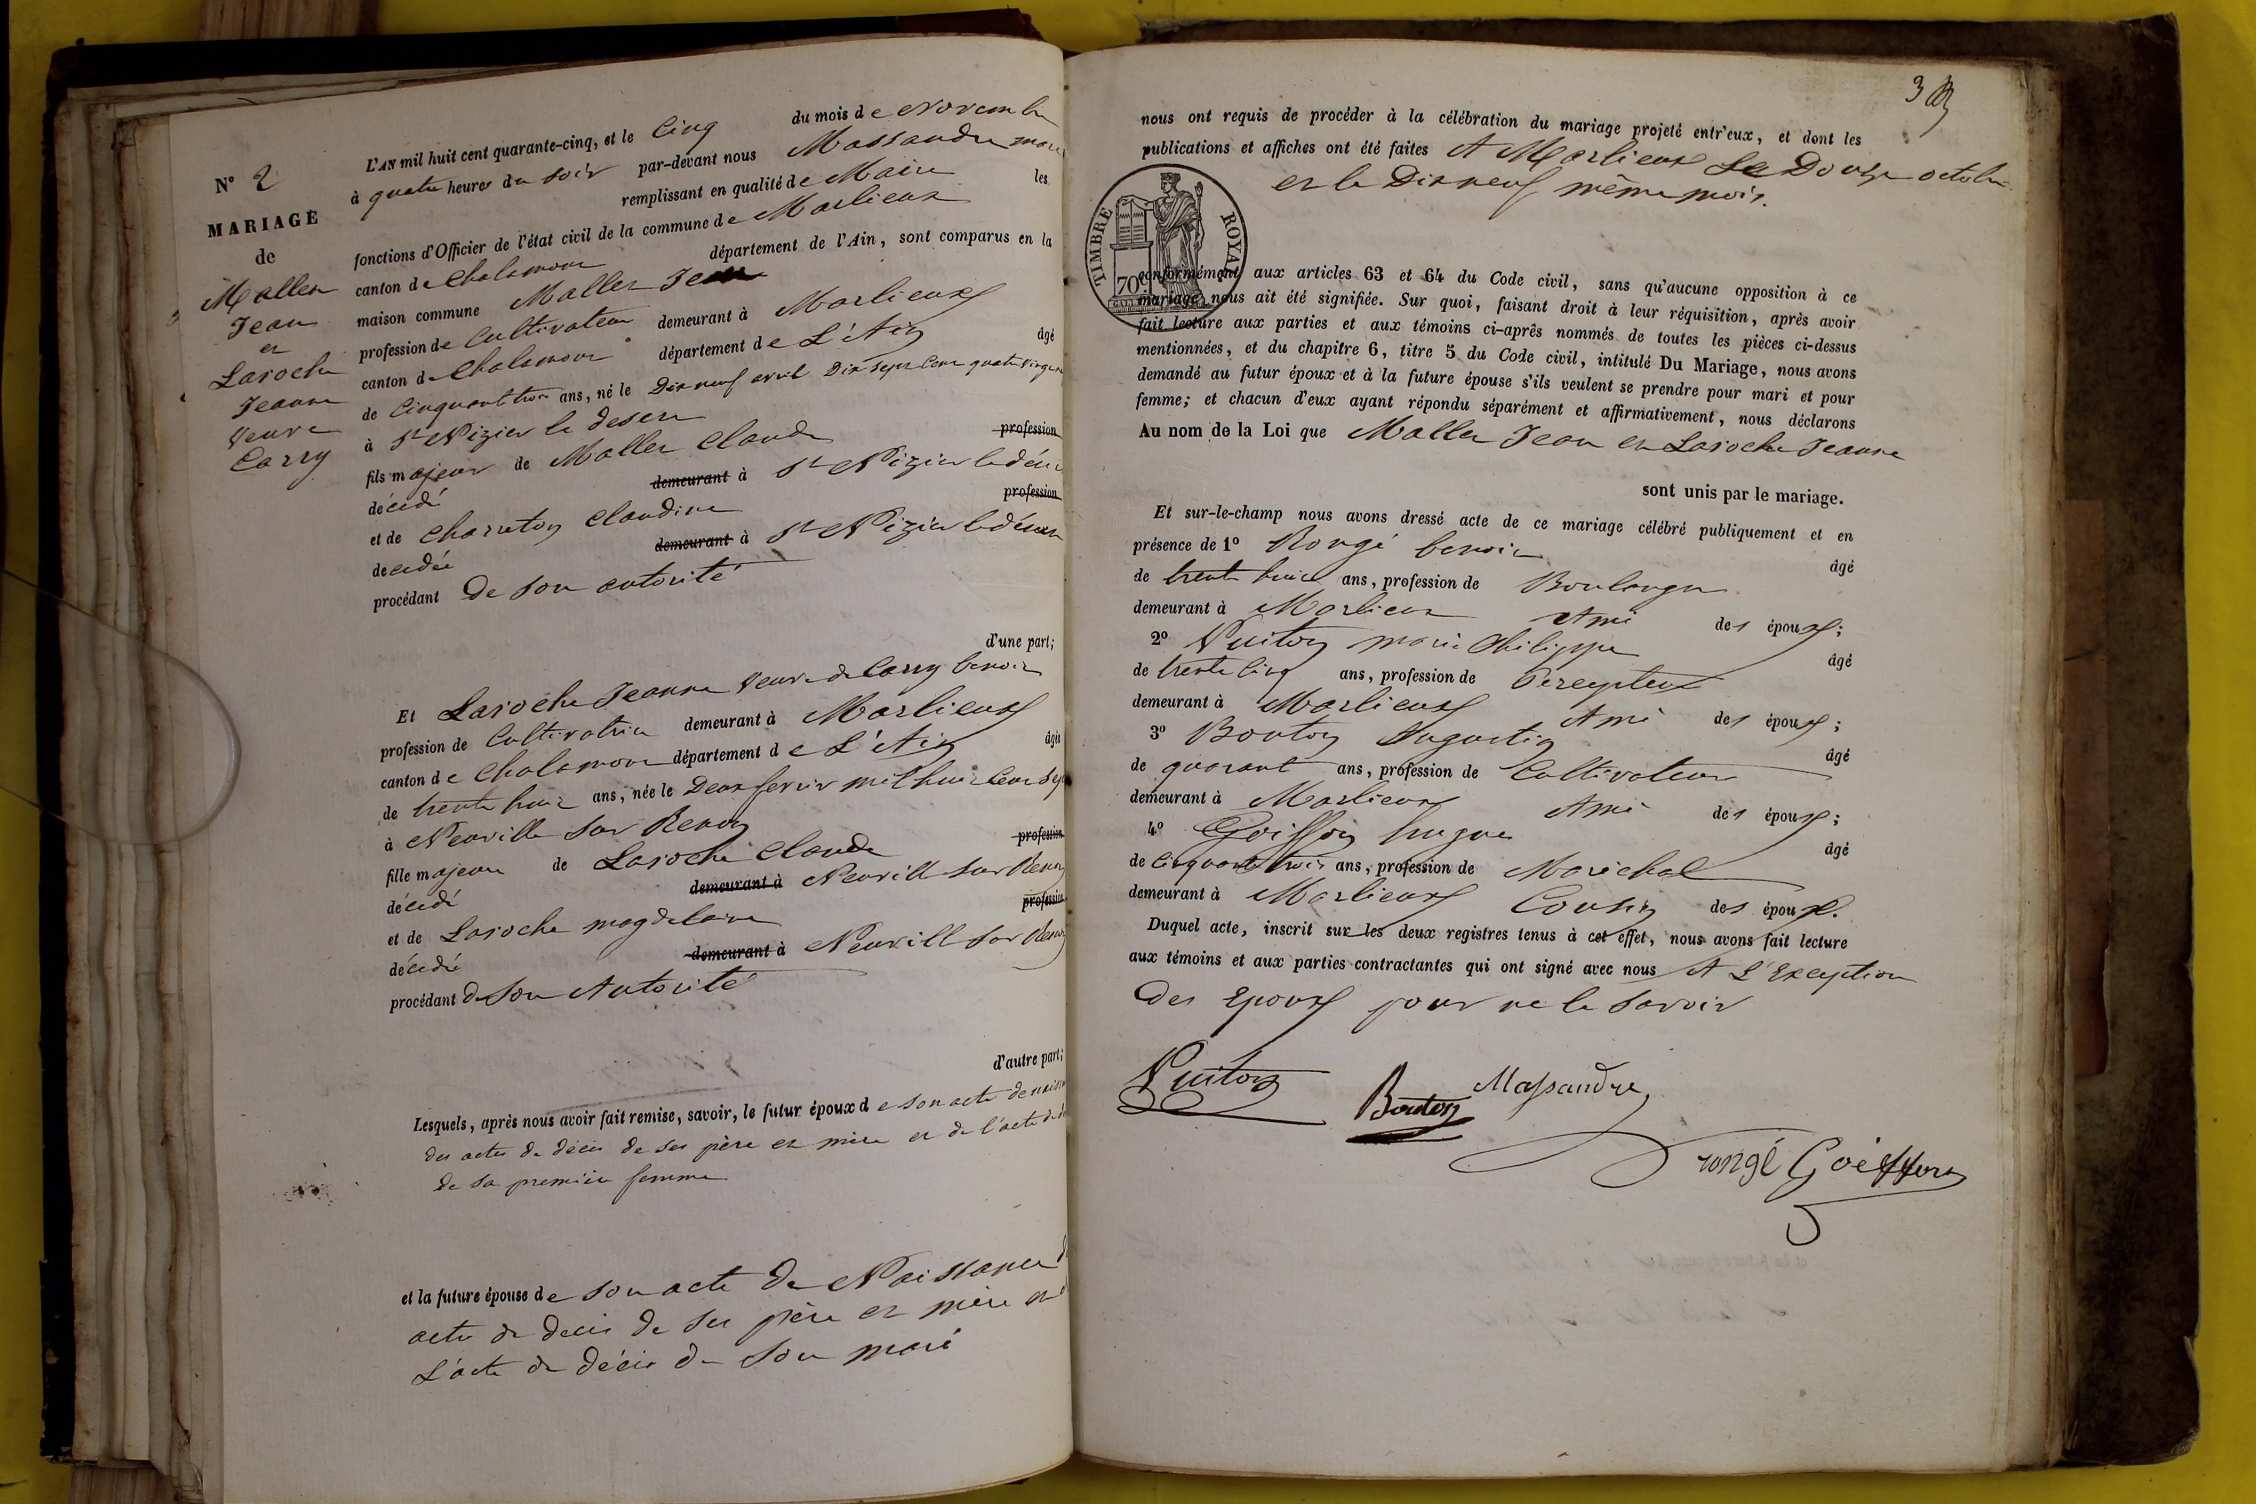 N° 2
MARIAGE
de
Mallet
Jean
et
Laroche
Jeanne
veuve
Carry
L'AN mil huit cent quarante-cinq, et le Cinq du mois de Novembre
à quatre heures du soir par-devant nous Massandre maire
remplissant en qualité de Maire les
fonctions d'Officier de l'état civil de la commune de Marlieux
canton de Chalamont département de l'Ain, sont comparus en la
maison commune Mallet Jean
profession de Cultivateur demeurant à Marlieux
canton de Chalamont département de L'Ain âgé
de Cinquante trois ans, né le Dix neuf avril Dix sept Cent quatre vingt
à St Nizier le desert
fils majeur de Mallet Claude profession
décédé demeurant à St Nizier le désert
et de Charreton Claudine profession
decedée demeurant à St Nizier le désert
procédant de son autorité
d'une part;
Et Laroche Jeanne veuve de Carry benoit
profession de Cultivatrice demeurant à Marlieux
canton de Chalamont département de L'Ain âgée
de trente huit ans, née le Deux fevrier mil huit Cent Sept
à Neuville sur Renon
fille majeure de Laroche Claude profession
décédé demeurant à Neuville sur Renon
et de Laroche magdelaine profession
décédée demeurant à Neuville sur Renon
procédant de son Autorité
d'autre part;
Lesquels, après nous avoir fait remise, savoir, le futur époux de son acte de naissance
des actes de décès de ses père et mère et de l'acte de
de sa première femme
et la future épouse de son acte de Naissance
actes de decès de ses père et mère et
L'acte de décès de son mari
3
nous ont requis de procéder à la célébration du mariage projeté entr'eux, et dont les
publications et affiches ont été faites A Marlieux Le Douze octobre
et le Dix neuf même mois.
TIMBRE ROYAL
70
conformément aux articles 63 et 64 du Code civil, sans qu'aucune opposition à ce
mariage nous ait été signifiée. Sur quoi, faisant droit à leur réquisition, après avoir
fait lecture aux parties et aux témoins ci-après nommés de toutes les pièces ci-dessus
mentionnées, et du chapitre 6, titre 5 du Code civil, intitulé Du Mariage, nous avons
demandé au futur époux et à la future épouse s'ils veulent se prendre pour mari et pour
femme; et chacun d'eux ayant répondu séparément et affirmativement, nous déclarons
Au nom de la Loi que Mallet Jean et Laroche Jeanne
sont unis par le mariage.
Et sur-le-champ nous avons dressé acte de ce mariage célébré publiquement et en
présence de 1° Rongé benoit âgé
de trente huit ans, profession de Boulanger
demeurant à Marlieux Ami des époux;
2° Puitton marie Philippe âgé
de trente Cinq ans, profession de Percepteur
demeurant à Marlieux Ami des époux;
3° Bouton Augustin âgé
de quarante ans, profession de Cultivateur
demeurant à Marlieux Ami des époux;
4° Goiffon hugue âgé
de cinquante trois ans, profession de Maréchal
demeurant à Marlieux Cousin des époux.
Duquel acte, inscrit sur les deux registres tenus à cet effet, nous avons fait lecture
aux témoins et aux parties contractantes qui ont signé avec nous A L'Exception
des Epoux pour ne le savoir
Puitton
Bouton
Massandre
rongé Goiffon